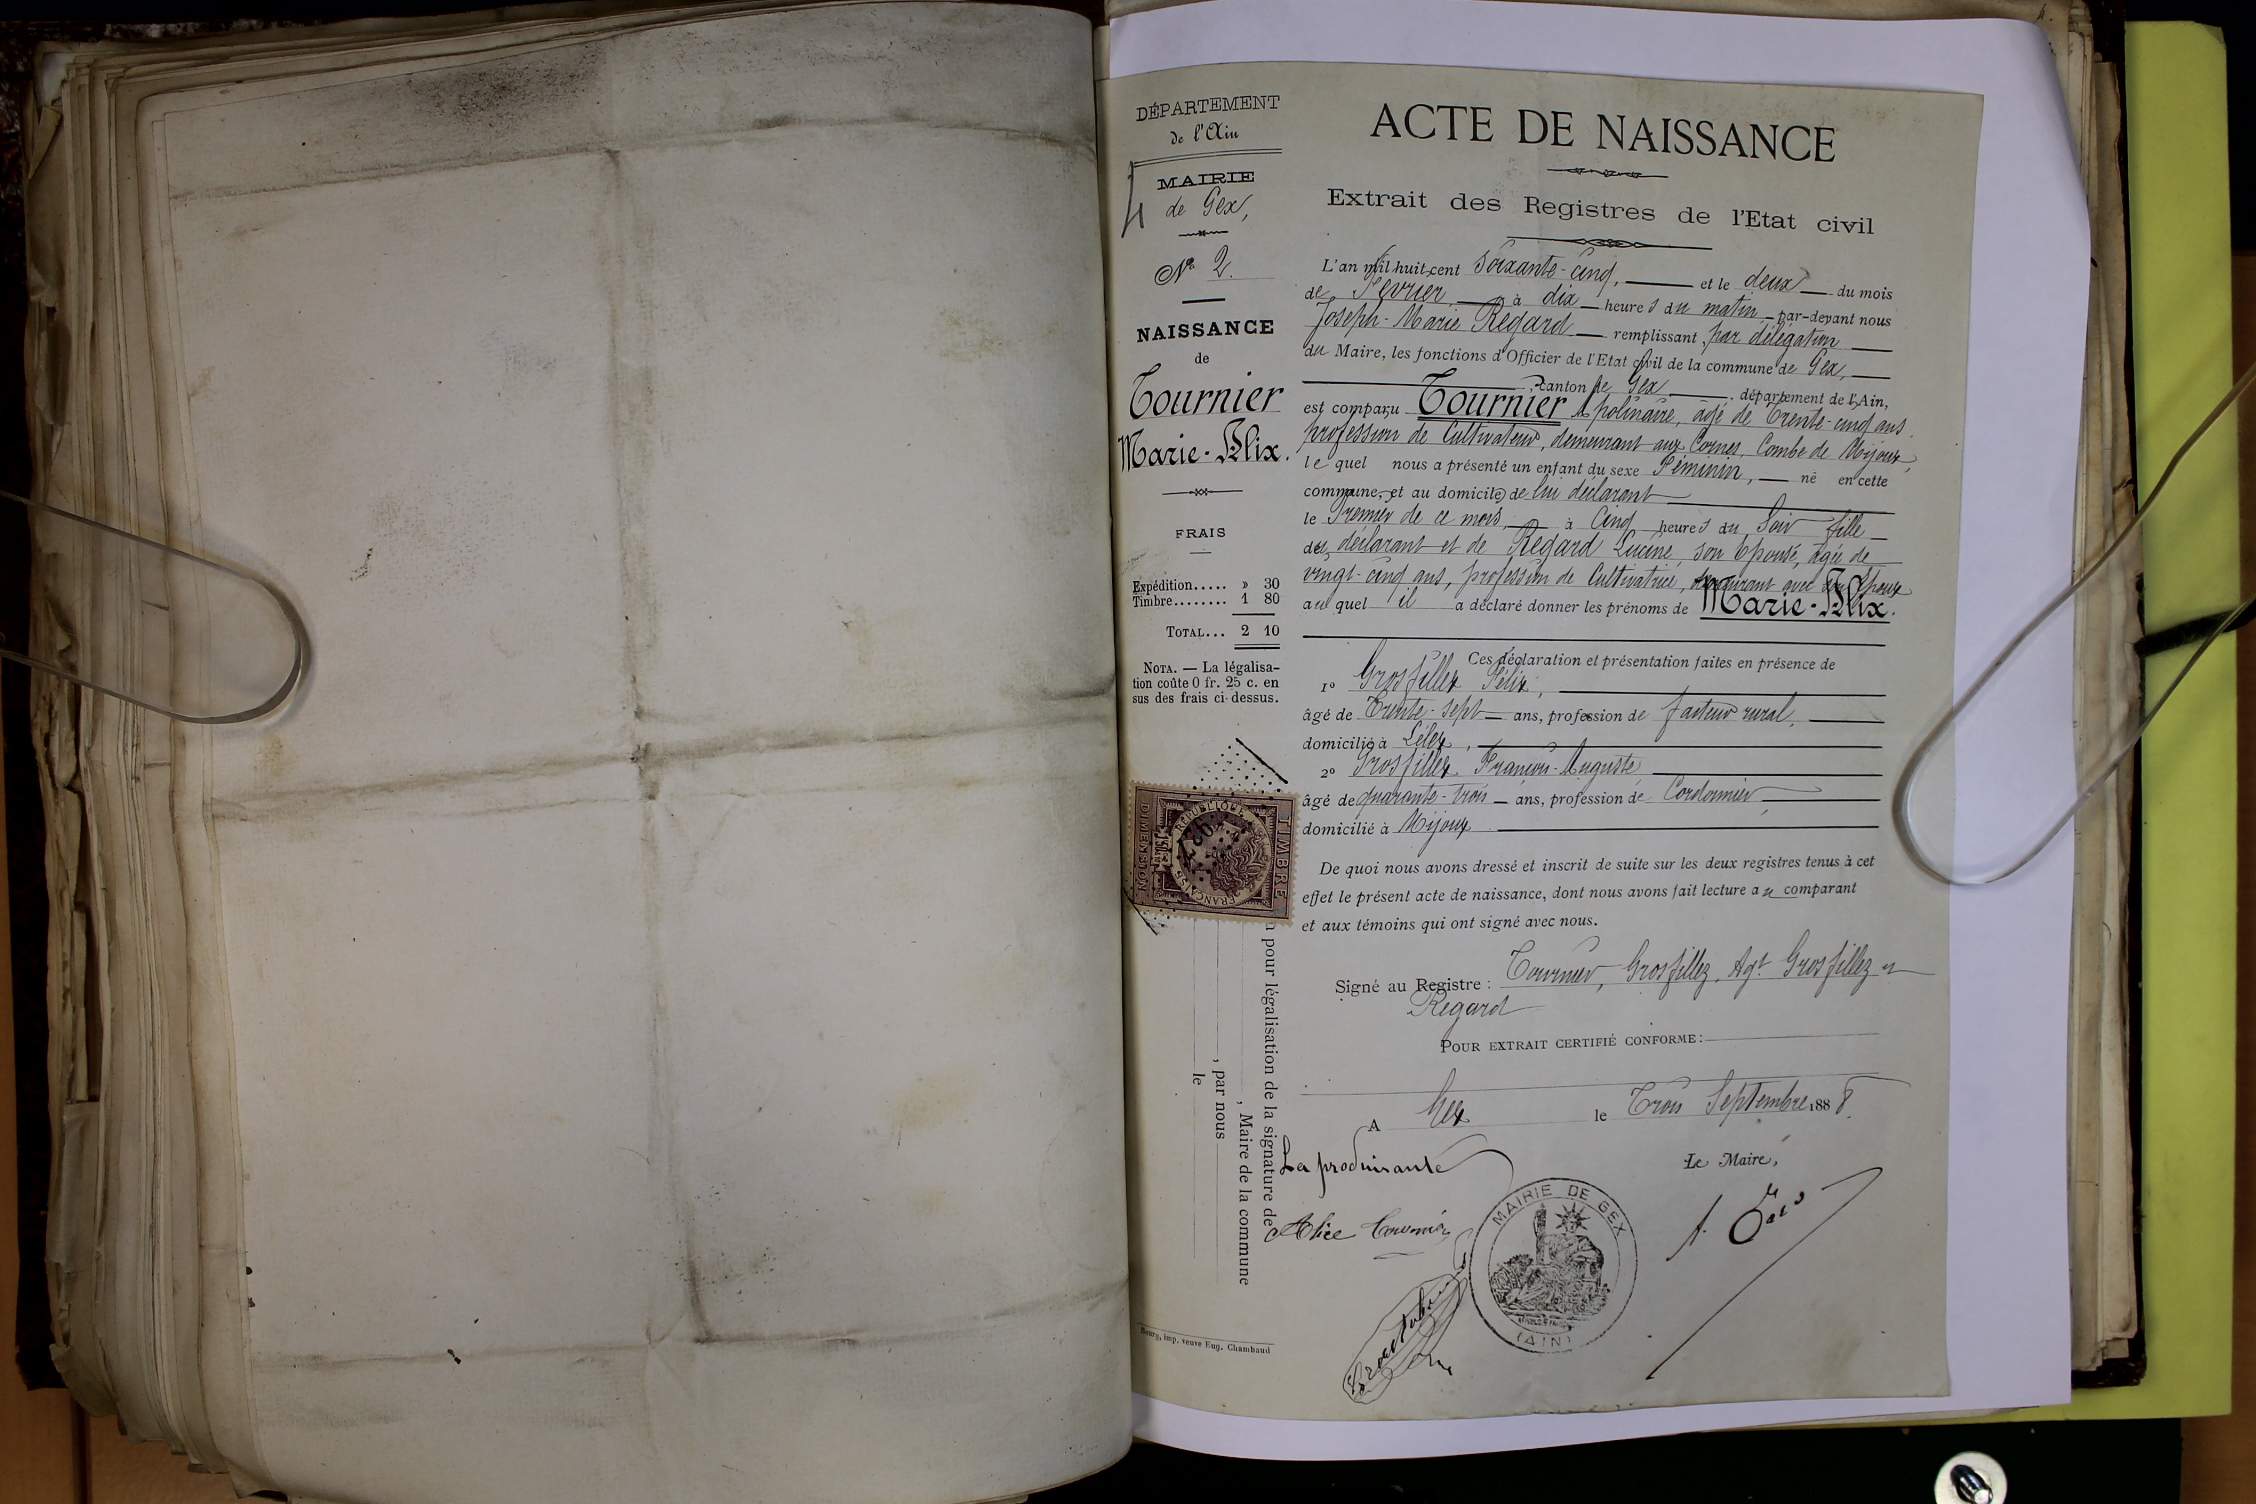 DÉPARTEMENT
de l'Ain
MAIRIE
de Gex,
4
No 2.
NAISSANCE
de
Tournier
Marie-Alix.
FRAIS
Expédition..... » 30
Timbre........ 1 80
TOTAL... 2 10
NOTA. — La légalisa-
tion coûte 0 fr. 25 c. en
sus des frais ci-dessus.
TIMBRE
REPUBLIQUE
FRANÇAISE
DIMENSION
pour légalisation de la signature de
, Maire de la commune
, par nous
le
Bourg, imp. veuve Eug. Chambaud
ACTE DE NAISSANCE
Extrait des Registres de l'Etat civil
L'an mil huit cent Soixante-cinq, et le deux du mois
de Février à dix heures du matin par-devant nous
Joseph-Marie Regard remplissant par délégation
du Maire, les fonctions d'Officier de l'Etat civil de la commune de Gex,
, canton de Gex, département de l'Ain,
est comparu Tournier Apolinaire, âgé de Trente-cinq ans
profession de Cultivateur, demeurant aux Cornes, Combe de Mijoux,
le quel nous a présenté un enfant du sexe Féminin, né en cette
commune, et au domicile de lui déclarant
le Premier de ce mois, à Cinq heures du Soir fille
du déclarant et de Regard Lucine, son épouse, âgée de
vingt-cinq ans, profession de Cultivatrice, demeurant avec son époux
au quel il a déclaré donner les prénoms de Marie-Alix.
Ces déclaration et présentation faites en présence de
1o Grosfillex Félix,
âgé de Trente-sept ans, profession de facteur rural,
domicilié à Lélex,
2o Grosfillex François-Auguste
âgé de quarante-trois ans, profession de Cordonnier,
domicilié à Mijoux
De quoi nous avons dressé et inscrit de suite sur les deux registres tenus à cet
effet le présent acte de naissance, dont nous avons fait lecture au comparant
et aux témoins qui ont signé avec nous.
Signé au Registre : Tournier, Grosfillez, Agt Grosfillez et
Regard
POUR EXTRAIT CERTIFIÉ CONFORME:
A Gex le Trois Septembre 1888.
La produisante
Le Maire,
Alice Tournier
MAIRIE DE GEX
(AIN)